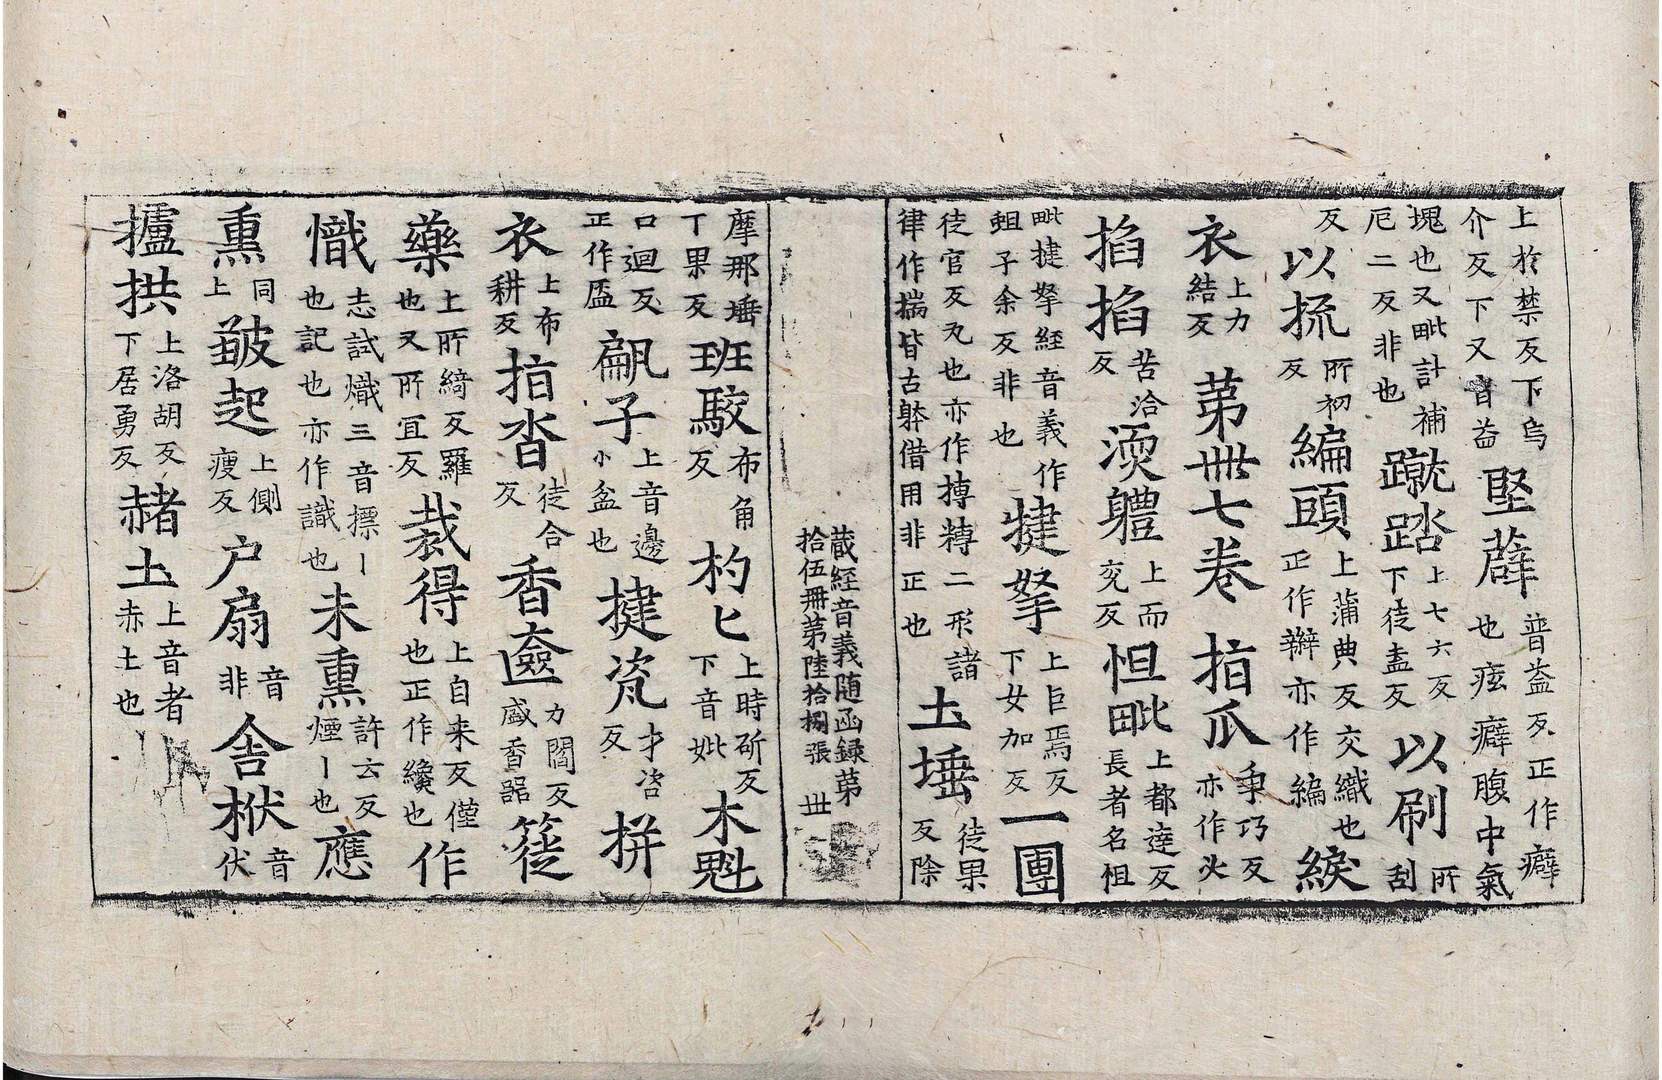 上於禁反下烏介反下又音益堅薜普益反正作癖也痃癖腹中氣
塊也又毗計補尼二反非也蹴踏上七六反下徒盍反以刷所刮
反以梳所初反編頭上蒲典反交織也正作辮亦作編綟
衣上力結反第卌七卷指爪爭巧反亦作叉
掐掐苦洽反渜軆上而兖反怛毗上都達反長者名怚
毗揵拏經音義作蛆子余反非也犍拏上巨焉反下女加反一團
徒官反丸也亦作摶𫾣二形諸律作揣皆古躰借用非正也土埵徒果反除
藏經音義随函録第拾伍冊第陸拾捌張 丗
摩那埵丁果反班駮布角反杓匕上時斫反下音妣木魁
口迴反正作盔甂子上音邊小盆也揵瓷才咨反拼
衣上布耕反揩沓徒合反香奩力閻反盛香器簁
藥上所綺反羅也又所宜反裁得上自来反僅也正作纔也作
幟志試熾三音摽丨也記也亦作識也未熏許云反煙丨也應
熏同上皷起上側瘦反户扇音非舎栿音伏
攎拱上洛胡反下居勇反赭土上音者赤土也